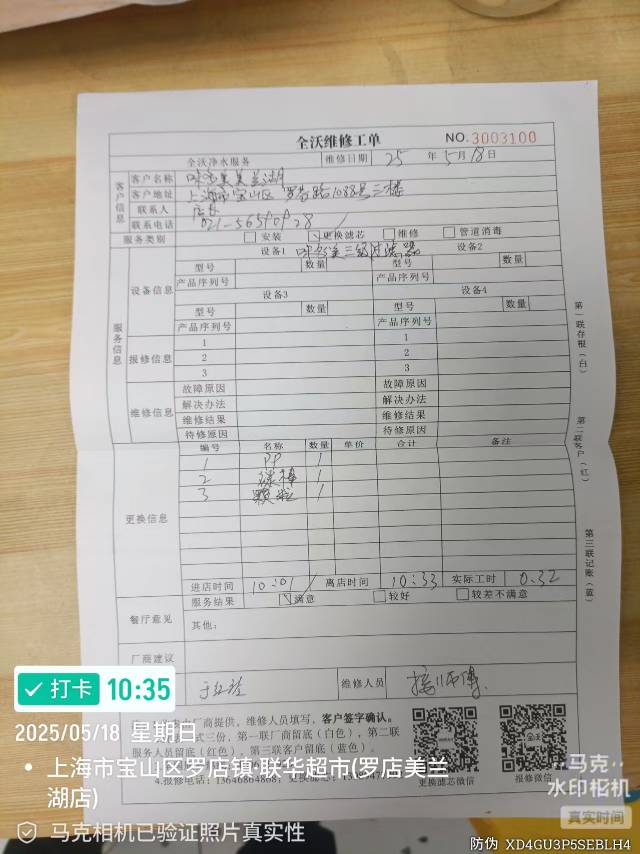 全沃维修工单
NO.3003100
全沃净水服务 维修日期 25 年 5 月 18 日
客户信息
客户名称 美兰湖
客户地址 上海市宝山区 罗芬路1088号三楼
联系人 店长
联系电话 021-56590928
服务类别 安装 更换滤芯 维修 管道消毒
服务信息
设备信息
设备1 三级过滤器 设备2
型号 数量 型号 数量
产品序列号 产品序列号
设备3 设备4
型号 数量 型号 数量
产品序列号 产品序列号
报修信息
1 1
2 2
3 3
维修信息
故障原因 故障原因
解决办法 解决办法
维修结果 维修结果
待修原因 待修原因
更换信息
编号 名称 数量 单价 合计 备注
1 PP 1
2 碳棒 1
3 颗粒 1
进店时间 10:01 离店时间 10:33 实际工时 0.32
餐厅意见
服务结果 满意 较好 较差不满意
其他:
厂商建议
维修人员
厂商提供,维修人员填写,客户签字确认。
式三份,第一联厂商留底(白色),第二联
服务人员留底(红色),第三联客户留底(蓝色)。
4.报修电话:13646864868;
更换滤芯微信
报修微信
第一联存根(白)
第二联客户(红)
第三联记账(蓝)
打卡 10:35
2025/05/18 星期日
上海市宝山区罗店镇·联华超市(罗店美兰
湖店)
马克相机已验证照片真实性
马克
水印相机
真实时间
防伪 XD4GU3P5SEBLH4